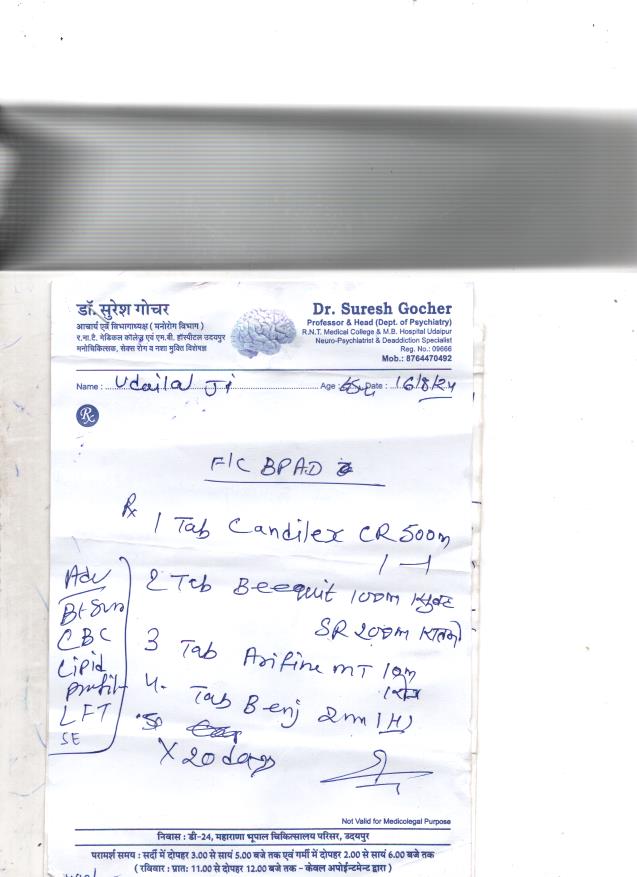 डॉ. सुरेश गोचर
आचार्य एवं विभागाध्यक्ष ( मनोरोग विभाग )
र.ना.टै. मेडिकल कॉलेज एवं एम.बी. हॉस्पीटल उदयपुर
मनोचिकित्सक, सेक्स रोग व नशा मुक्ति विशेषज्ञ
Dr. Suresh Gocher
Professor & Head (Dept. of Psychiatry)
R.N.T. Medical College & M.B. Hospital Udaipur
Neuro-Psychiatrist & Deaddiction Specialist
Reg. No.: 09666
Mob.: 8764470492
Name : Udailal Ji Age : Date : 16/8/24
Rx
F/C BPAD
Rx 1 Tab Candilex CR 500m
1 - 1
2 Tab Beequit 100m सुबह
SR 200m
3 Tab Arifine MT 10m
4. Tab Benj 2m 1 H
5
X 20 days
Adv
CBC
Lipid
profile
LFT
SE
Not Valid for Medicolegal Purpose
निवास : डी-24, महाराणा भूपाल चिकित्सालय परिसर, उदयपुर
परामर्श समय : सर्दी में दोपहर 3.00 से सायं 5.00 बजे तक एवं गर्मी में दोपहर 2.00 से सायं 6.00 बजे तक
( रविवार : प्रात: 11.00 से दोपहर 12.00 बजे तक - केवल अपोईन्टमेन्ट द्वारा )